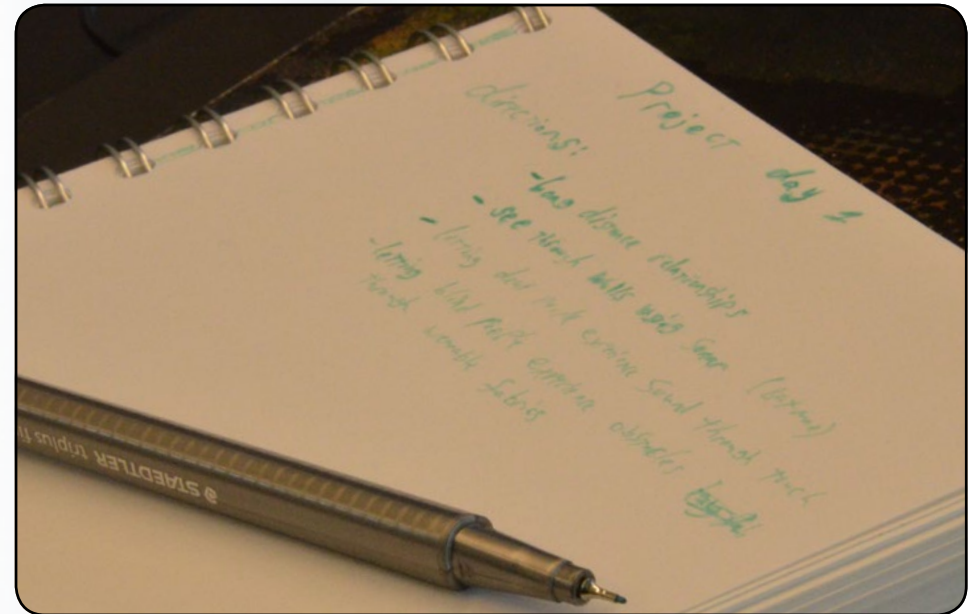 Project day 1
directions:
- long distance relationships
- see through walls using sonar
- letting deaf experience sound through touch
- letting blind experience obstacles
through wearable fabrics
STAEDTLER triplus fi